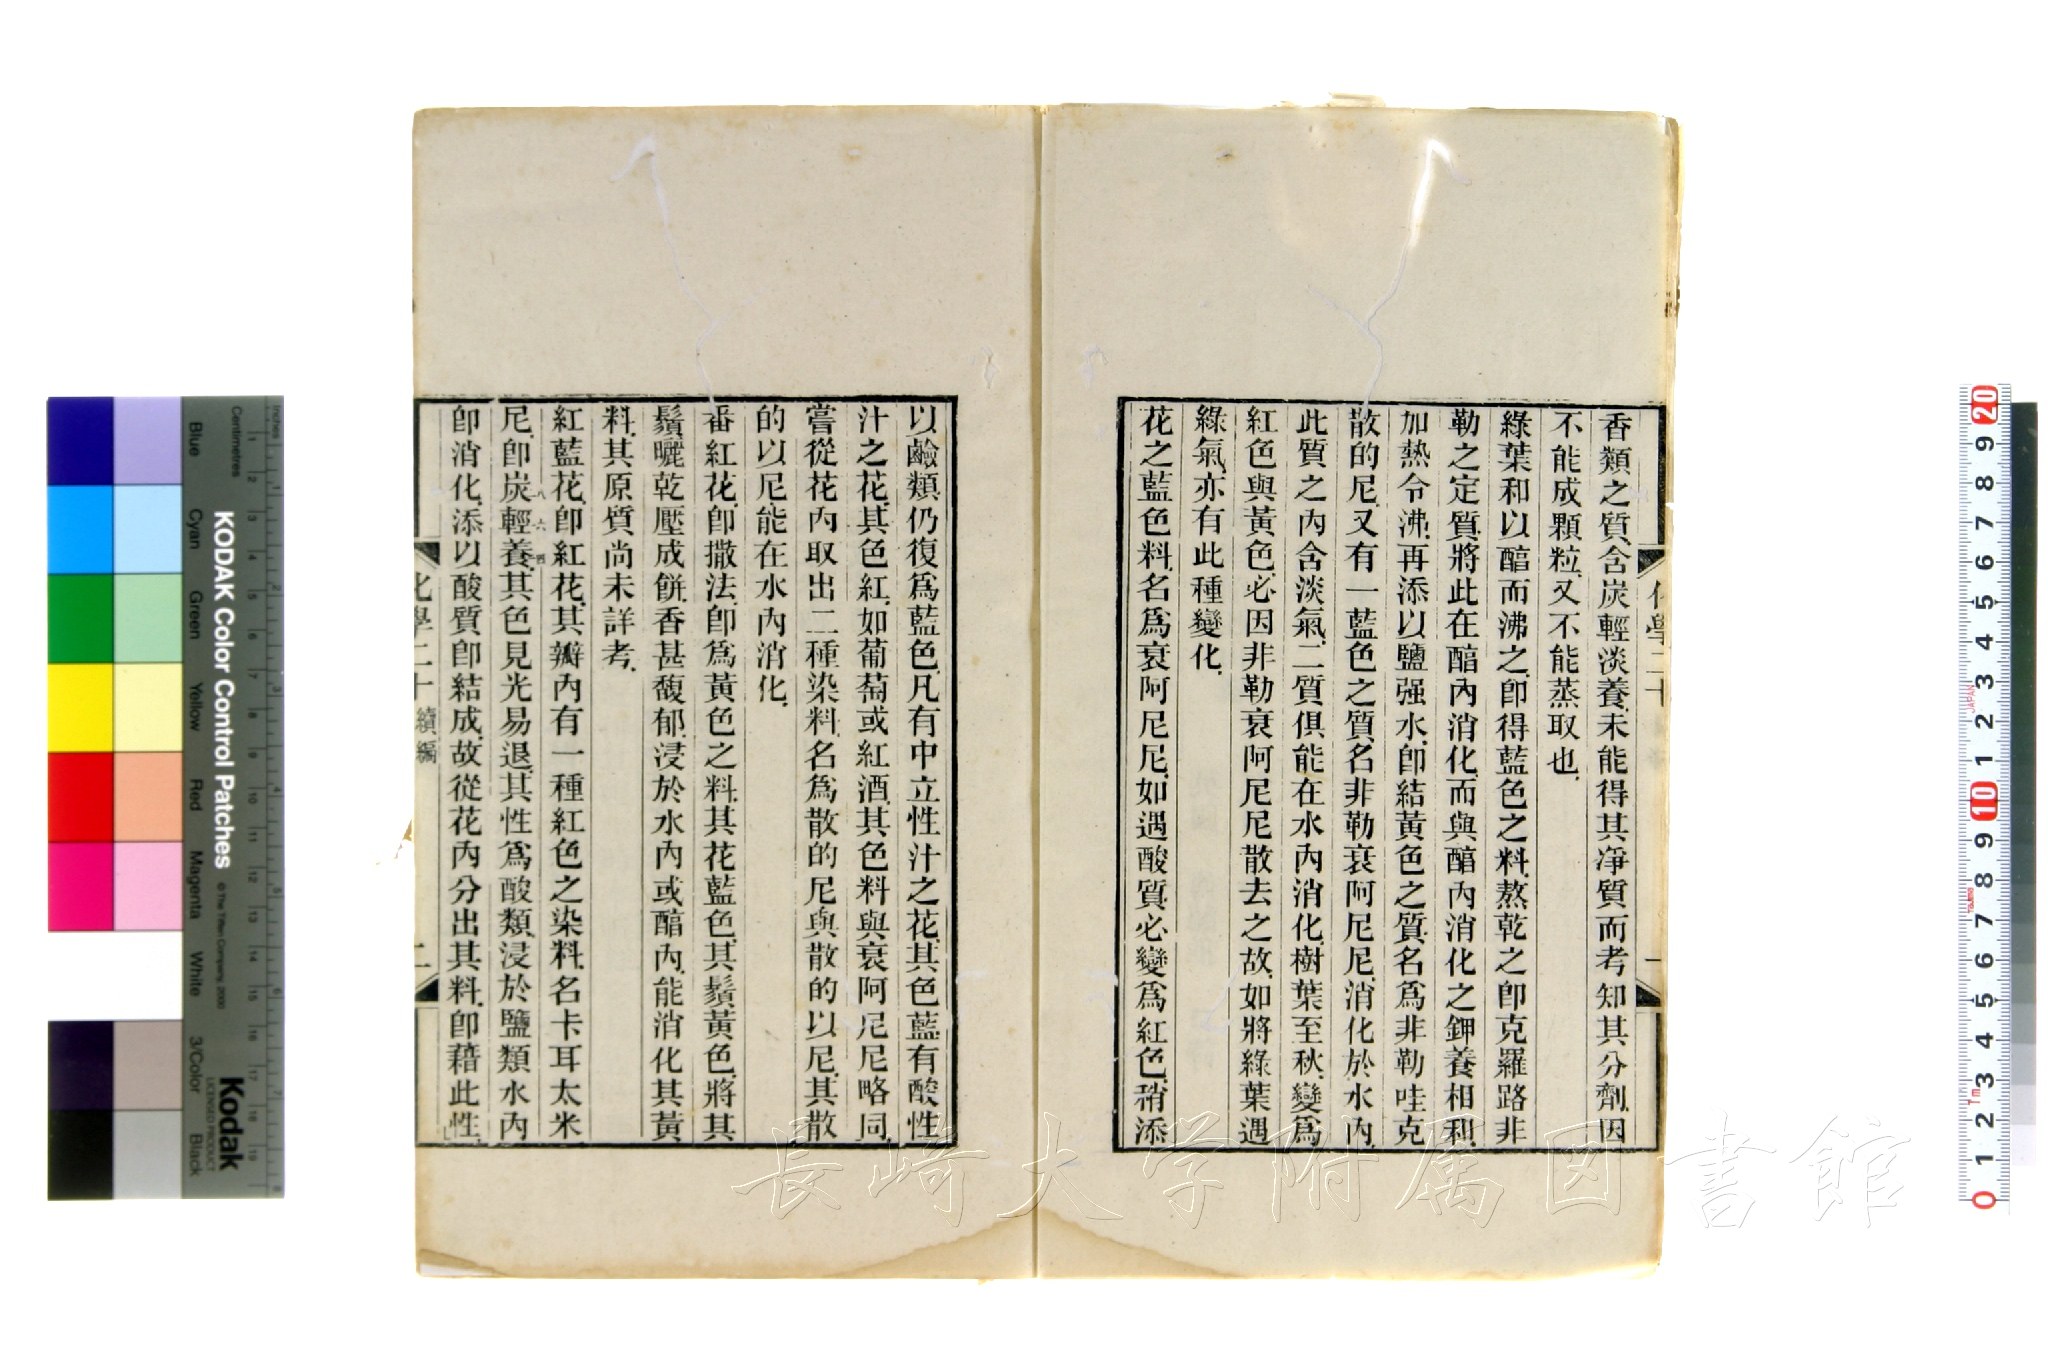 香類之質、含炭輕淡養、未能得其凈質而考知其分劑、因
不能成顆粒、又不能蒸取也、
綠葉和以醕而沸之、卽得藍色之料、熬乾之卽克羅路非
勒之定質、將此在醕內消化、而與醕內消化之鉀養相和、
加熱令沸、再添以鹽强水、卽結黃色之質、名爲非勒哇克
散的尼、又有一藍色之質、名非勒衰阿尼尼、消化於水內、
此質之內含淡氣、二質俱能在水內消化、樹葉至秋、變爲
紅色與黃色、必因非勒衰阿尼尼散去之故、如將綠葉遇
綠氣、亦有此種變化、
花之藍色料、名爲衰阿尼尼、如遇酸質、必變爲紅色、稍添
化學二十
一
以鹼類、仍復爲藍色、凡有中立性汁之花、其色藍、有酸性
汁之花、其色紅、如葡萄或紅酒、其色料與衰阿尼尼略同、
嘗從花內取出二種染料、名爲散的尼與散的以尼、其散
的以尼、能在水內消化、
番紅花、卽撒法、卽爲黃色之料、其花藍色、其鬚黃色、將其
鬚曬乾壓成餅、香甚馥郁、浸於水內或醕內、能消化其黃
料、其原質尚未詳考、
紅藍花、卽紅花、其瓣內有一種紅色之染料、名卡耳太米
尼、卽炭輕養、其色見光易退、其性爲酸類、浸於鹽類水內
卽消化、添以酸質卽結成、故從花內分出其料、卽藉此性、
化學二十 續編
二
長崎大学附属図書館
KODAK Color Control Patches
© The Tiffen Company, 2000
Kodak
LICENSED PRODUCT
Inches
Centimetres
Blue
Cyan
Green
Yellow
Red
Magenta
White
3/Color
Black